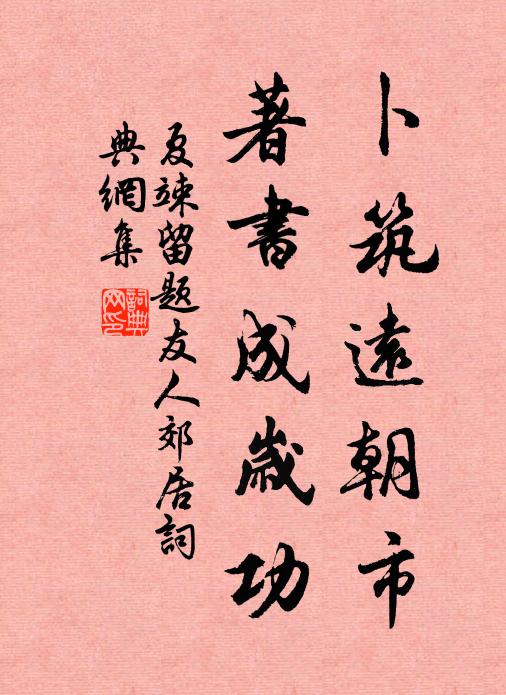 卜筑遠朝市
著書成歲功
夏竦留題友人郊居詞
典網集
詞典網印